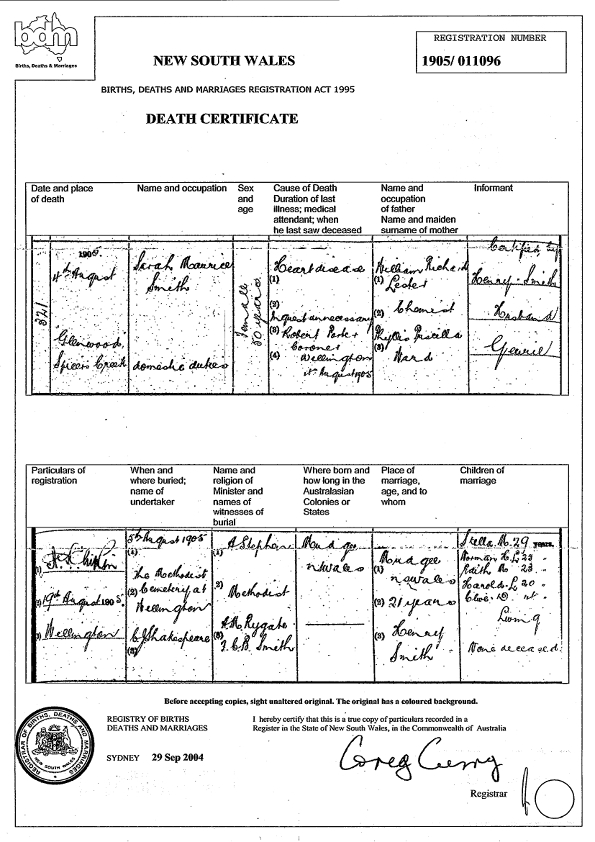 bdm
Births, Deaths & Marriages
REGISTRATION NUMBER
1905/ 011096
NEW SOUTH WALES
BIRTHS, DEATHS AND MARRIAGES REGISTRATION ACT 1995
DEATH CERTIFICATE
Date and place of death
Name and occupation
Sex and age
Cause of Death Duration of last illness; medical attendant; when he last saw deceased
Name and occupation of father Name and maiden surname of mother
Informant
321
1905
4th August
Glenwood,
Spicers Creek
Sarah Maurice
Smith
domestic duties
Female
50 years
Heart disease
(1)
(2)
Inquest unnecessary
(3) Robert Parker
Coroner
(4) Wellington
4th August 1905
William Richard
(1) Lester
(2) Chemist
Phyllis Priscilla
(3) Ward
Certified by
Henry Smith
Husband
Particulars of registration
When and where buried; name of undertaker
Name and religion of Minister and names of witnesses of burial
Where born and how long in the Australasian Colonies or States
Place of marriage, age, and to whom
Children of marriage
(1)
(2) 19th August 1905
(3) Wellington
5th August 1905
(1)
The Methodist
(2) Cemetery at
Wellington
C J Shakespeare
(3)
(1) A Stephen
(2) Methodist
(3)
Mudgee
n s wales
(1) Mudgee
n s wales
(2) 21 years
(3) Henry
Smith
Stella M. 29 years
Norman H. L 25
Edith M 23
Harold L 20
Living
None deceased
Before accepting copies, sight unaltered original. The original has a coloured background.
REGISTRAR OF BIRTHS, DEATHS AND MARRIAGES
NEW SOUTH WALES
REGISTRY OF BIRTHS
DEATHS AND MARRIAGES
SYDNEY 29 Sep 2004
I hereby certify that this is a true copy of particulars recorded in a
Register in the State of New South Wales, in the Commonwealth of Australia
Greg Curry
Registrar